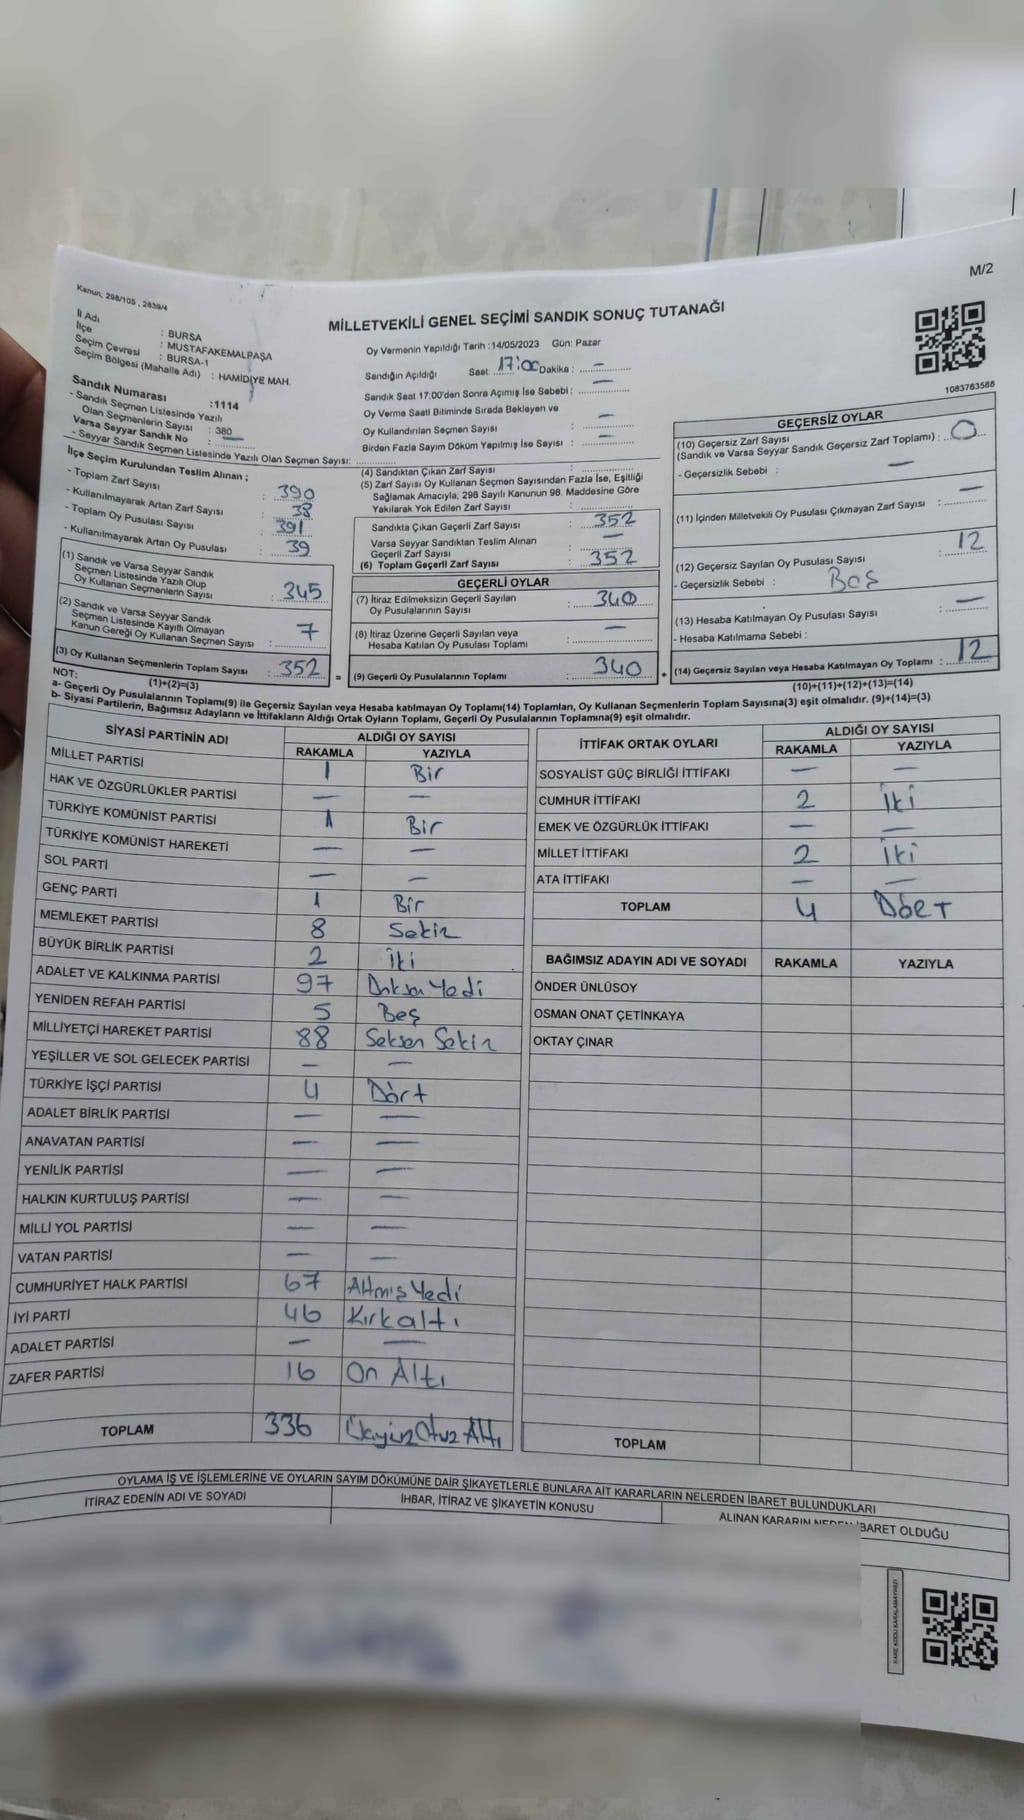 M/2
Kanun, 298/105 , 2839/4
MİLLETVEKİLİ GENEL SEÇİMİ SANDIK SONUÇ TUTANAĞI
1083763588
İl Adı : BURSA
İlçe : MUSTAFAKEMALPAŞA
Seçim Çevresi : BURSA-1
Seçim Bölgesi (Mahalle Adı) : HAMİDİYE MAH.
Sandık Numarası :1114
- Sandık Seçmen Listesinde Yazılı
Olan Seçmenlerin Sayısı : 380
Varsa Seyyar Sandık No : —
- Seyyar Sandık Seçmen Listesinde Yazılı Olan Seçmen Sayısı:
İlçe Seçim Kurulundan Teslim Alınan ;
- Toplam Zarf Sayısı : 390
- Kullanılmayarak Artan Zarf Sayısı : 38
- Toplam Oy Pusulası Sayısı : 391
- Kullanılmayarak Artan Oy Pusulası : 39
(1) Sandık ve Varsa Seyyar Sandık
Seçmen Listesinde Yazılı Olup
Oy Kullanan Seçmenlerin Sayısı : 345
(2) Sandık ve Varsa Seyyar Sandık
Seçmen Listesinde Kayıtlı Olmayan
Kanun Gereği Oy Kullanan Seçmen Sayısı : 7
(3) Oy Kullanan Seçmenlerin Toplam Sayısı : 352
(1)+(2)=(3)
Oy Vermenin Yapıldığı Tarih :14/05/2023 Gün: Pazar
Sandığın Açıldığı Saat: 17:00 Dakika : —
Sandık Saat 17:00'den Sonra Açımış İse Sebebi : —
Oy Verme Saati Bitiminde Sırada Bekleyen ve
Oy Kullandırılan Seçmen Sayısı : —
Birden Fazla Sayım Döküm Yapılmış İse Sayısı : —
(4) Sandıktan Çıkan Zarf Sayısı :
(5) Zarf Sayısı Oy Kullanan Seçmen Sayısından Fazla İse, Eşitliği
Sağlamak Amacıyla, 298 Sayılı Kanunun 98. Maddesine Göre
Yakılarak Yok Edilen Zarf Sayısı :
Sandıkta Çıkan Geçerli Zarf Sayısı : 352
Varsa Seyyar Sandıktan Teslim Alınan
Geçerli Zarf Sayısı : —
(6) Toplam Geçerli Zarf Sayısı : 352
GEÇERLİ OYLAR
(7) İtiraz Edilmeksizin Geçerli Sayılan
Oy Pusulalarının Sayısı : 340
(8) İtiraz Üzerine Geçerli Sayılan veya
Hesaba Katılan Oy Pusulası Toplamı : —
= (9) Geçerli Oy Pusulalarının Toplamı : 340 +
GEÇERSİZ OYLAR
(10) Geçersiz Zarf Sayısı
(Sandık ve Varsa Seyyar Sandık Geçersiz Zarf Toplamı) : 0
- Geçersizlik Sebebi : —
(11) İçinden Milletvekili Oy Pusulası Çıkmayan Zarf Sayısı : —
(12) Geçersiz Sayılan Oy Pusulası Sayısı : 12
- Geçersizlik Sebebi : Boş
(13) Hesaba Katılmayan Oy Pusulası Sayısı : —
- Hesaba Katılmama Sebebi :
(14) Geçersiz Sayılan veya Hesaba Katılmayan Oy Toplamı : 12
(10)+(11)+(12)+(13)=(14)
NOT:
a- Geçerli Oy Pusulalarının Toplamı(9) ile Geçersiz Sayılan veya Hesaba katılmayan Oy Toplamı(14) Toplamları, Oy Kullanan Seçmenlerin Toplam Sayısına(3) eşit olmalıdır. (9)+(14)=(3)
b- Siyasi Partilerin, Bağımsız Adayların ve İttifakların Aldığı Ortak Oyların Toplamı, Geçerli Oy Pusulalarının Toplamına(9) eşit olmalıdır.
SİYASİ PARTİNİN ADI ALDIĞI OY SAYISI
RAKAMLA YAZIYLA
MİLLET PARTİSİ 1 Bir
HAK VE ÖZGÜRLÜKLER PARTİSİ — —
TÜRKİYE KOMÜNİST PARTİSİ 1 Bir
TÜRKİYE KOMÜNİST HAREKETİ — —
SOL PARTİ — —
GENÇ PARTİ 1 Bir
MEMLEKET PARTİSİ 8 Sekiz
BÜYÜK BİRLİK PARTİSİ 2 İki
ADALET VE KALKINMA PARTİSİ 97 Doksan Yedi
YENİDEN REFAH PARTİSİ 5 Beş
MİLLİYETÇİ HAREKET PARTİSİ 88 Seksen Sekiz
YEŞİLLER VE SOL GELECEK PARTİSİ — —
TÜRKİYE İŞÇİ PARTİSİ 4 Dört
ADALET BİRLİK PARTİSİ — —
ANAVATAN PARTİSİ — —
YENİLİK PARTİSİ — —
HALKIN KURTULUŞ PARTİSİ — —
MİLLİ YOL PARTİSİ — —
VATAN PARTİSİ — —
CUMHURİYET HALK PARTİSİ 67 Altmış Yedi
İYİ PARTİ 46 Kırk altı
ADALET PARTİSİ — —
ZAFER PARTİSİ 16 On Altı
TOPLAM 336 Üçyüz Otuz Altı
İTTİFAK ORTAK OYLARI ALDIĞI OY SAYISI
RAKAMLA YAZIYLA
SOSYALİST GÜÇ BİRLİĞİ İTTİFAKI — —
CUMHUR İTTİFAKI 2 İki
EMEK VE ÖZGÜRLÜK İTTİFAKI — —
MİLLET İTTİFAKI 2 İki
ATA İTTİFAKI — —
TOPLAM 4 Dört
BAĞIMSIZ ADAYIN ADI VE SOYADI RAKAMLA YAZIYLA
ÖNDER ÜNLÜSOY
OSMAN ONAT ÇETİNKAYA
OKTAY ÇINAR
TOPLAM
OYLAMA İŞ VE İŞLEMLERİNE VE OYLARIN SAYIM DÖKÜMÜNE DAİR ŞİKAYETLERLE BUNLARA AİT KARARLARIN NELERDEN İBARET BULUNDUKLARI
İTİRAZ EDENİN ADI VE SOYADI İHBAR, İTİRAZ VE ŞİKAYETİN KONUSU ALINAN KARARIN NEDEN İBARET OLDUĞU
KARE KODU KARALAMAYINIZ!